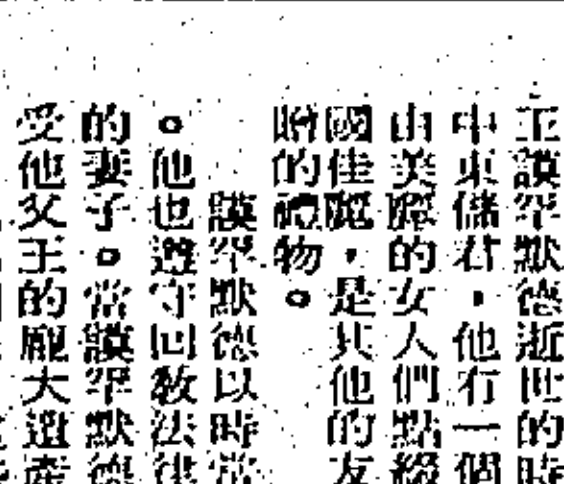 王謨罕默德逝世的時
中東儲君，他有一個
由美麗的女人們點綴
國佳麗，是其他的友
贈的禮物。
謨罕默德以時常
。他也遵守回教法律
的妻子。當謨罕默德
受他父王的龐大遺產